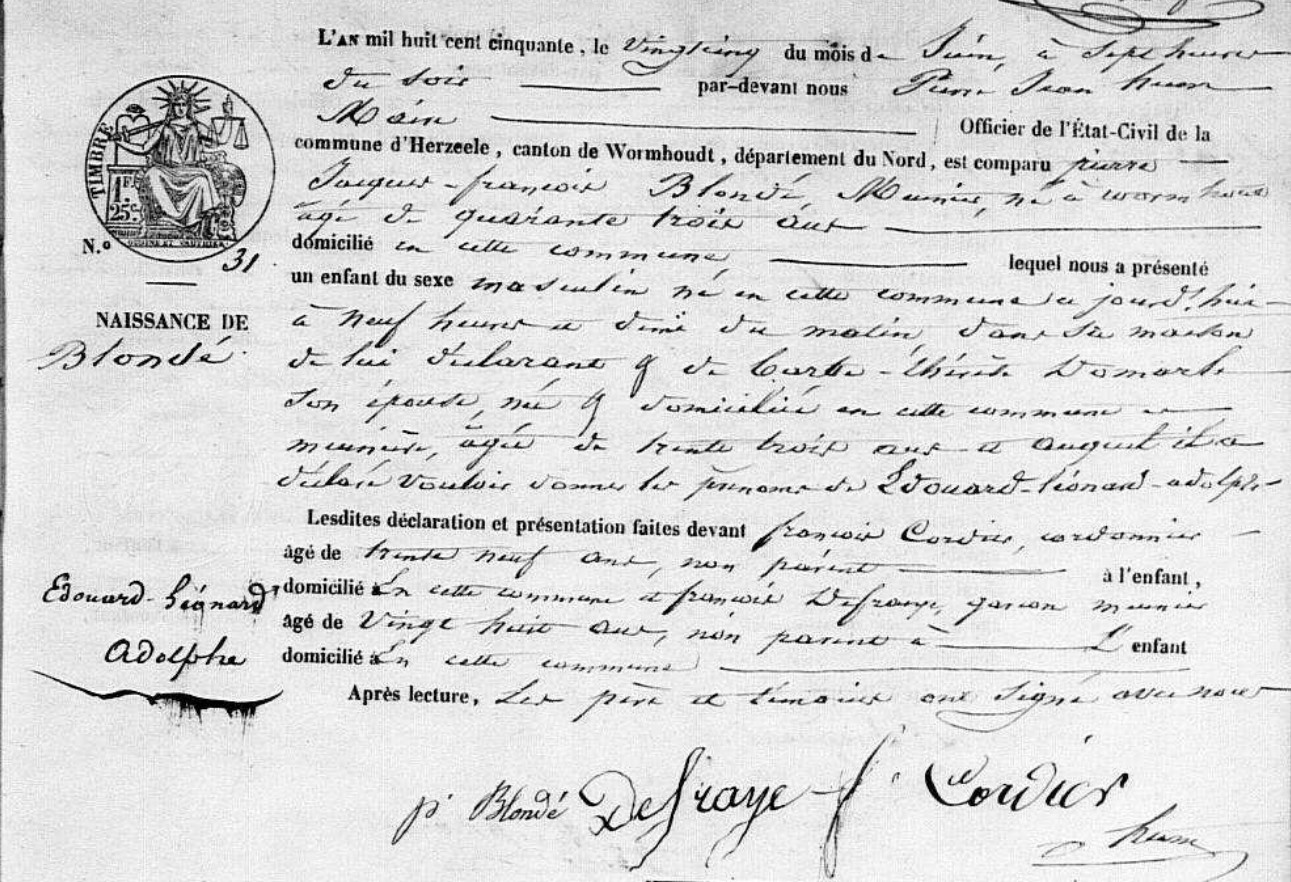 L'AN mil huit cent cinquante, le vingt cinq du mois de Juin, à sept heures
du soir par-devant nous Pierre Jean huem
Maire Officier de l'État-Civil de la
commune d'Herzeele, canton de Wormhoudt, département du Nord, est comparu pierre
Jacques-françois Blondé, Meunier, né à wormhout
âgé de quarante trois ans
domicilié en cette commune lequel nous a présenté
un enfant du sexe masculin né en cette commune ce jourd'hui
à neuf heures et demi du matin, dans sa maison
de lui déclarant & de Barbe-thérèse Domarle
son épouse, née & domiciliée en cette commune
meunière, âgée de trente trois ans et auquel il a
déclaré vouloir donner les prénoms de Edouard-léonard-adolphe
Lesdites déclaration et présentation faites devant françois Cordier, cordonnier
âgé de trente neuf ans, non parent à l'enfant,
domicilié à En cette commune et françois Defraye, garçon meunier
âgé de Vingt huit ans, non parent à L' enfant
domicilié à En cette commune
Après lecture, Les père et témoins ont signé avec nous
TIMBRE
1F.
25c.
N.º 31
NAISSANCE DE
Blondé
Edouard-Léonard
Adolphe
p. Blondé Defraye f. Cordier
huem